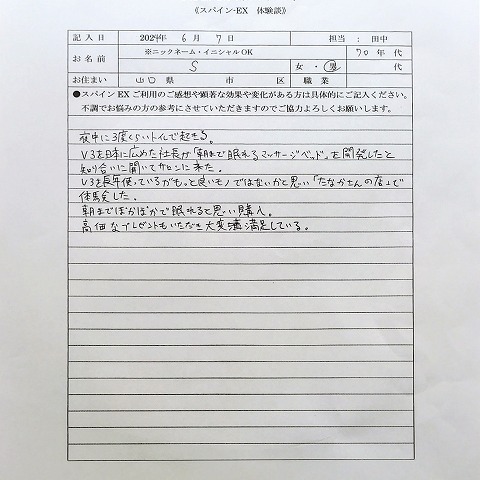 《スパイン-EX 体験談》
記入日 2024年 6月 7日 担当：田中
お名前 ※ニックネーム・イニシャルOK 70年代
S 女・男 代
お住まい 山口県 市 区 職業
●スパインEXご利用のご感想や顕著な効果や変化がある方は具体的にご記入ください。
不調でお悩みの方の参考にさせていただきますのでご協力よろしくお願いします。
夜中に3度くらいトイレで起きる。
V3を日本に広めた社長が「朝まで眠れるマッサージベッド」を開発したと
知り合いに聞いてサロンに来た。
V3を長年使っているがもっと良いモノではないかと思い「たなかさんの店」で
体験した。
朝までぽかぽかで眠れると思い購入。
高価なプレゼントもいただき大変満足している。